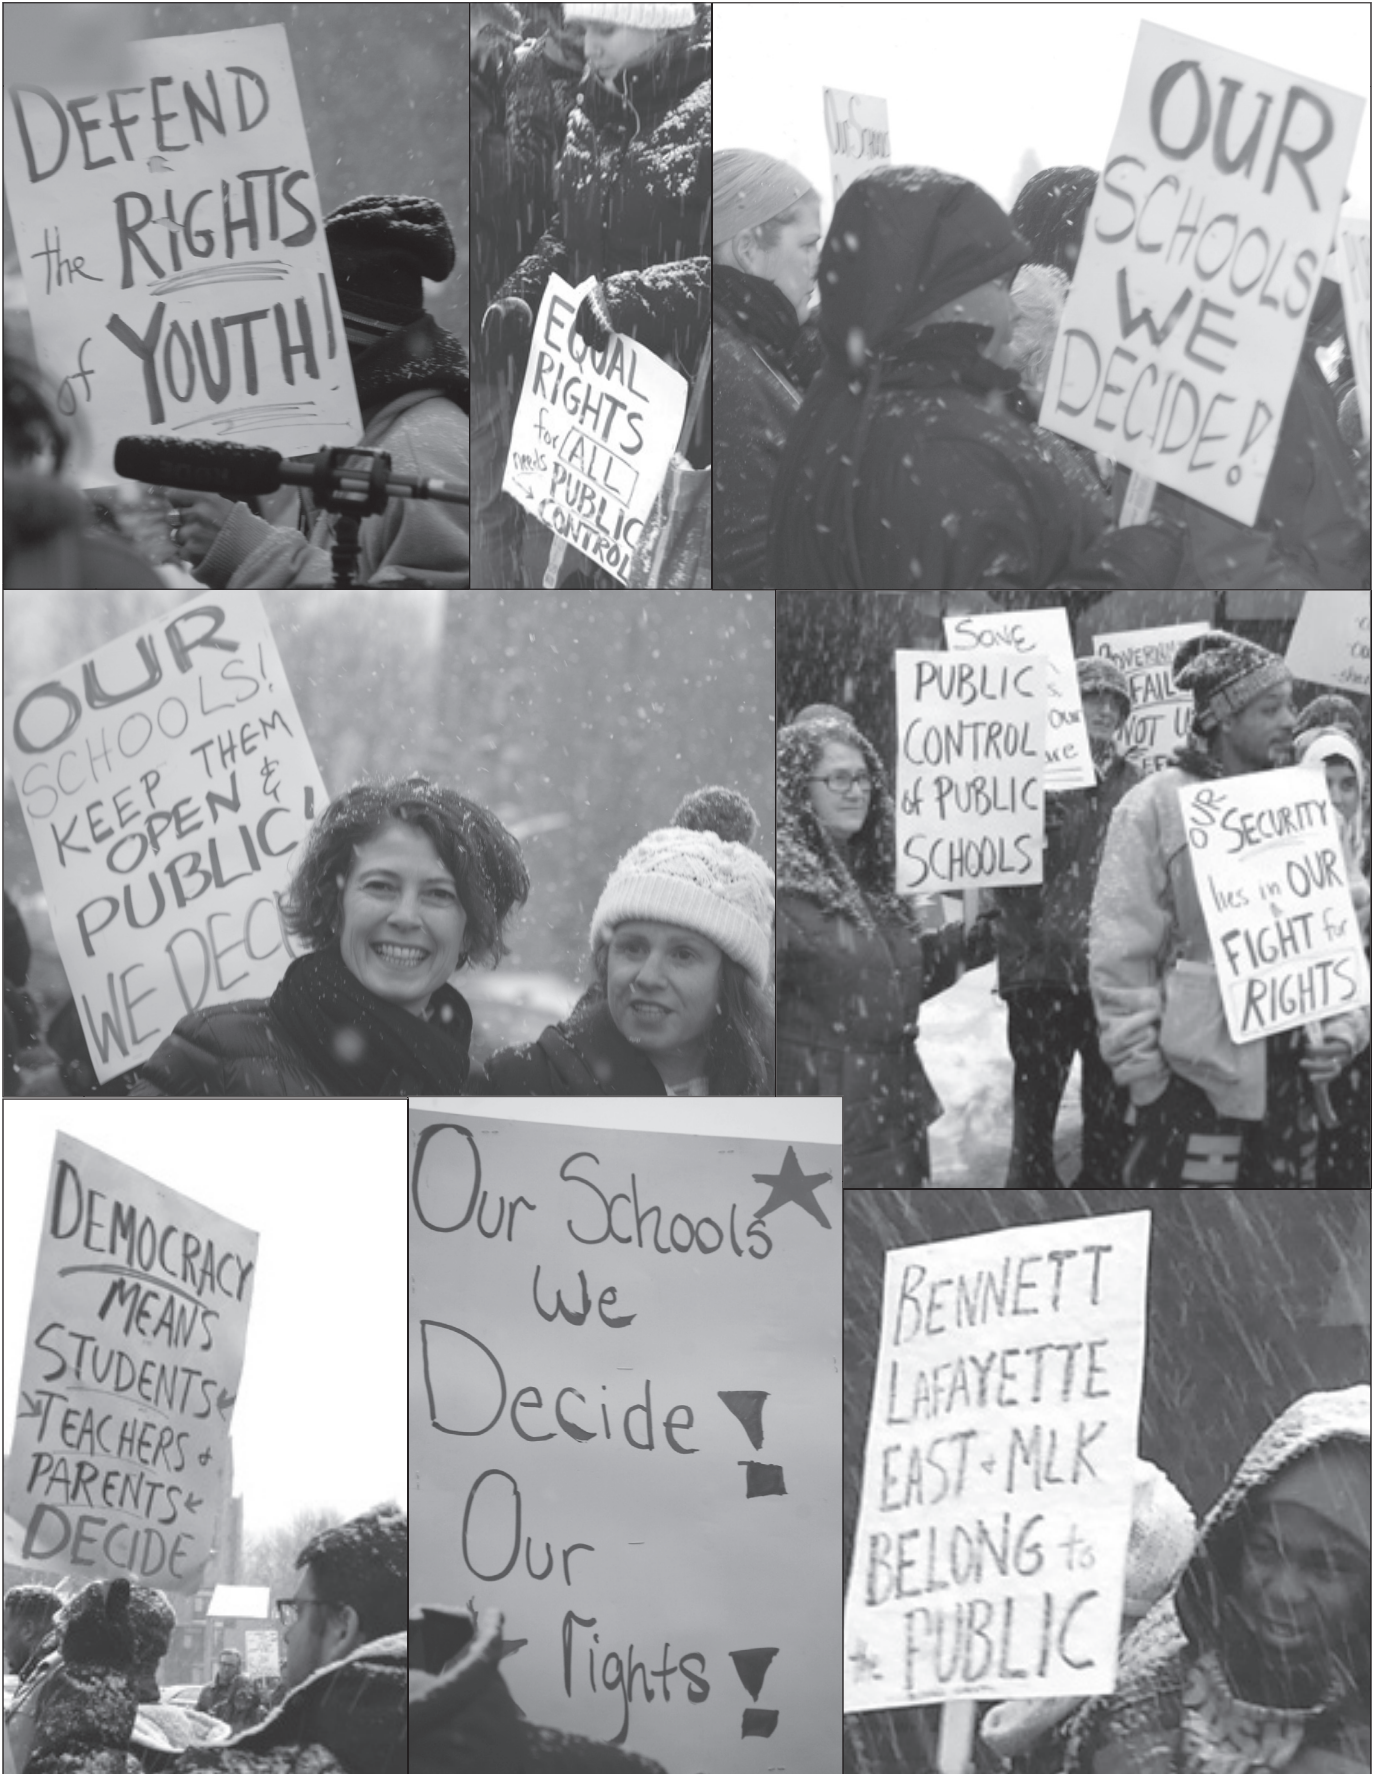 DEFEND
the RIGHTS
of YOUTH!
EQUAL
RIGHTS
for ALL
needs PUBLIC
CONTROL
Our Schools
OUR
SCHOOLS
WE
DECIDE!
OUR
SCHOOLS!
KEEP THEM
OPEN &
PUBLIC!
WE DECI
PUBLIC
CONTROL
of PUBLIC
SCHOOLS
Our
FAIL
NOT U
OUR
SECURITY
lies in OUR
FIGHT for
RIGHTS
DEMOCRACY
MEANS
STUDENTS
TEACHERS &
PARENTS
DECIDE
Our Schools
We
Decide!
Our
rights!
BENNETT
LAFAYETTE
EAST & MLK
BELONG to
the PUBLIC